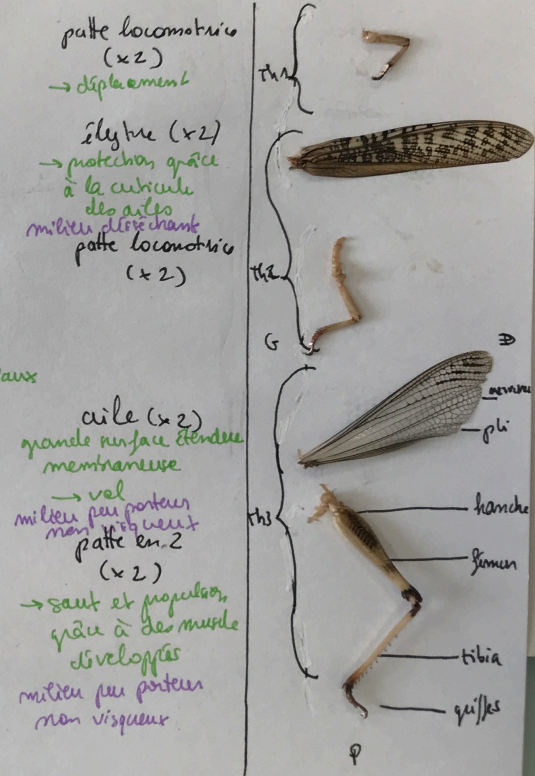 patte locomotrice
(x2)
→ déplacement
Th1
élytre (x2)
→ protection grâce
à la cuticule
des ailes
milieu désséchant
patte locomotrice
(x2)
Th2
G
D
aux
aile (x2)
grande surface étendue
membraneuse
→ vol
milieu peu porteur
non visqueux
nervures
pli
Th3
patte en Z
(x2)
→ saut et propulsion
grâce à des muscle
développés
milieu peu porteur
non visqueux
hanche
fémur
tibia
griffes
P